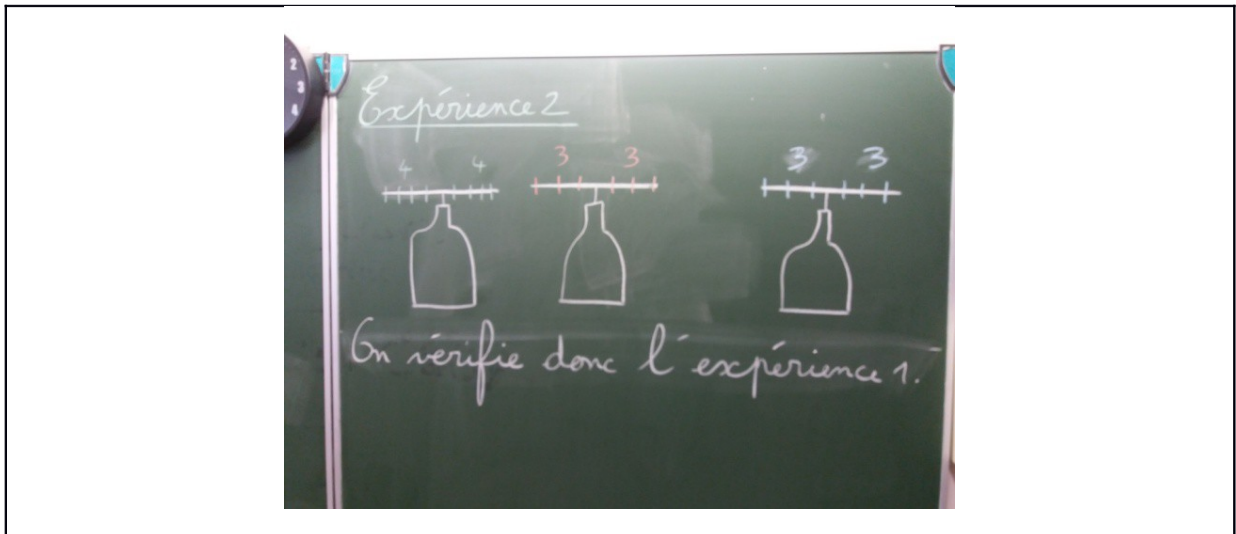 2
3
4
Expérience 2
4 4 3 3 3 3
On vérifie donc l'expérience 1.